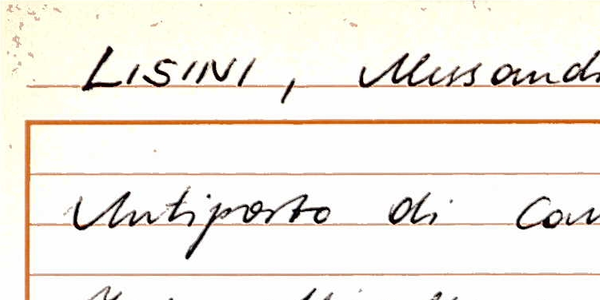 LISINI, Alessand
Antiporto di Cam